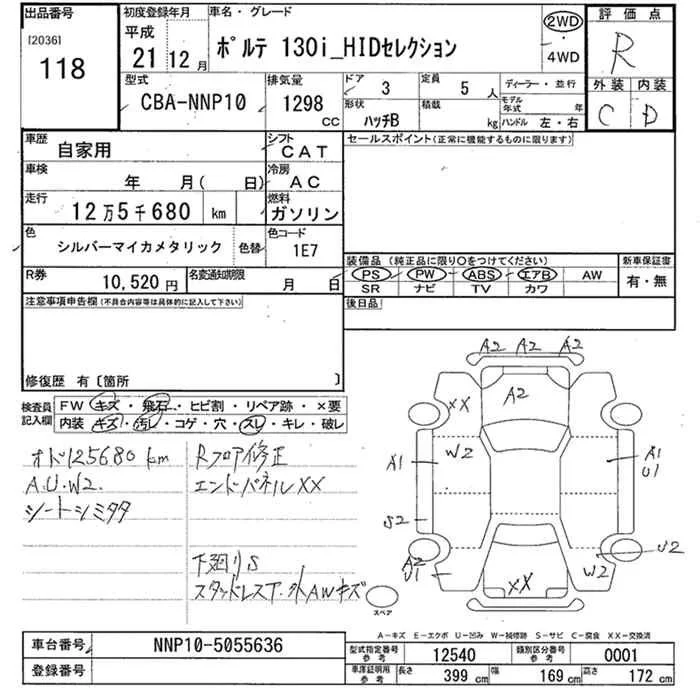 出品番号
[2036]
118
初度登録年月
平成
21 12 月
車名・グレード
ポルテ 130i_HIDセレクション
2WD
・
4WD
評価点
R
外装 内装
C D
型式
CBA-NNP10
排気量
1298 CC
ドア 3
定員 5 人
ディーラー・並行
モデル年式 年
形状 ハッチB
積載 kg
ハンドル 左・右
車歴 自家用
シフト CAT
車検 年 月( 日)
冷房 AC
走行 12万5千680 km
燃料 ガソリン
色 シルバーマイカメタリック 色替
色コード 1E7
R券 10,520 円
名変通知期限 月 日
セールスポイント(正常に機能するものに限ります)
装備品 (純正品に限り○をつけてください)
PS PW ABS エアB AW
SR ナビ TV カワ
新車保証書
有・無
後日品
注意事項申告欄(不具合内容等は具体的に記入して下さい)
修復歴 有〔箇所 〕
検査員記入欄
FW キズ・飛石・ヒビ割・リペア跡・×要
内装 キズ・汚レ・コゲ・穴・スレ・キレ・破レ
オド125680 km
A.U.W2.
シートシミタタ
Rフロア修正
エンドパネルXX
下廻りS
スタッドレスT.外AWキズ
A2 A2 A2
XX
A2
W2
A1
A1
U1
S2
A2
U1
XX
W2
U2
スペア
A-キズ E-エクボ U-凹み W-補修跡 S-サビ C-腐食 XX-交換済
車台番号 NNP10-5055636
登録番号
型式指定番号 参考 12540
類別区分番号 参考 0001
車庫証明用 参考
長さ 399 cm
幅 169 cm
高さ 172 cm